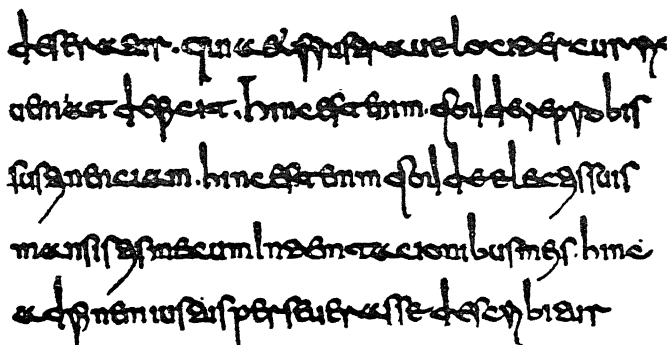 deseratur. quia et frustra uelociter curri
ueniat deficit. hinc est enim quod de reprobis
sustinenciam. hinc est enim quod de electis suis
mansistis mecum In tentacionibus meis. hinc
ad finem iustus perseuerasse describitur